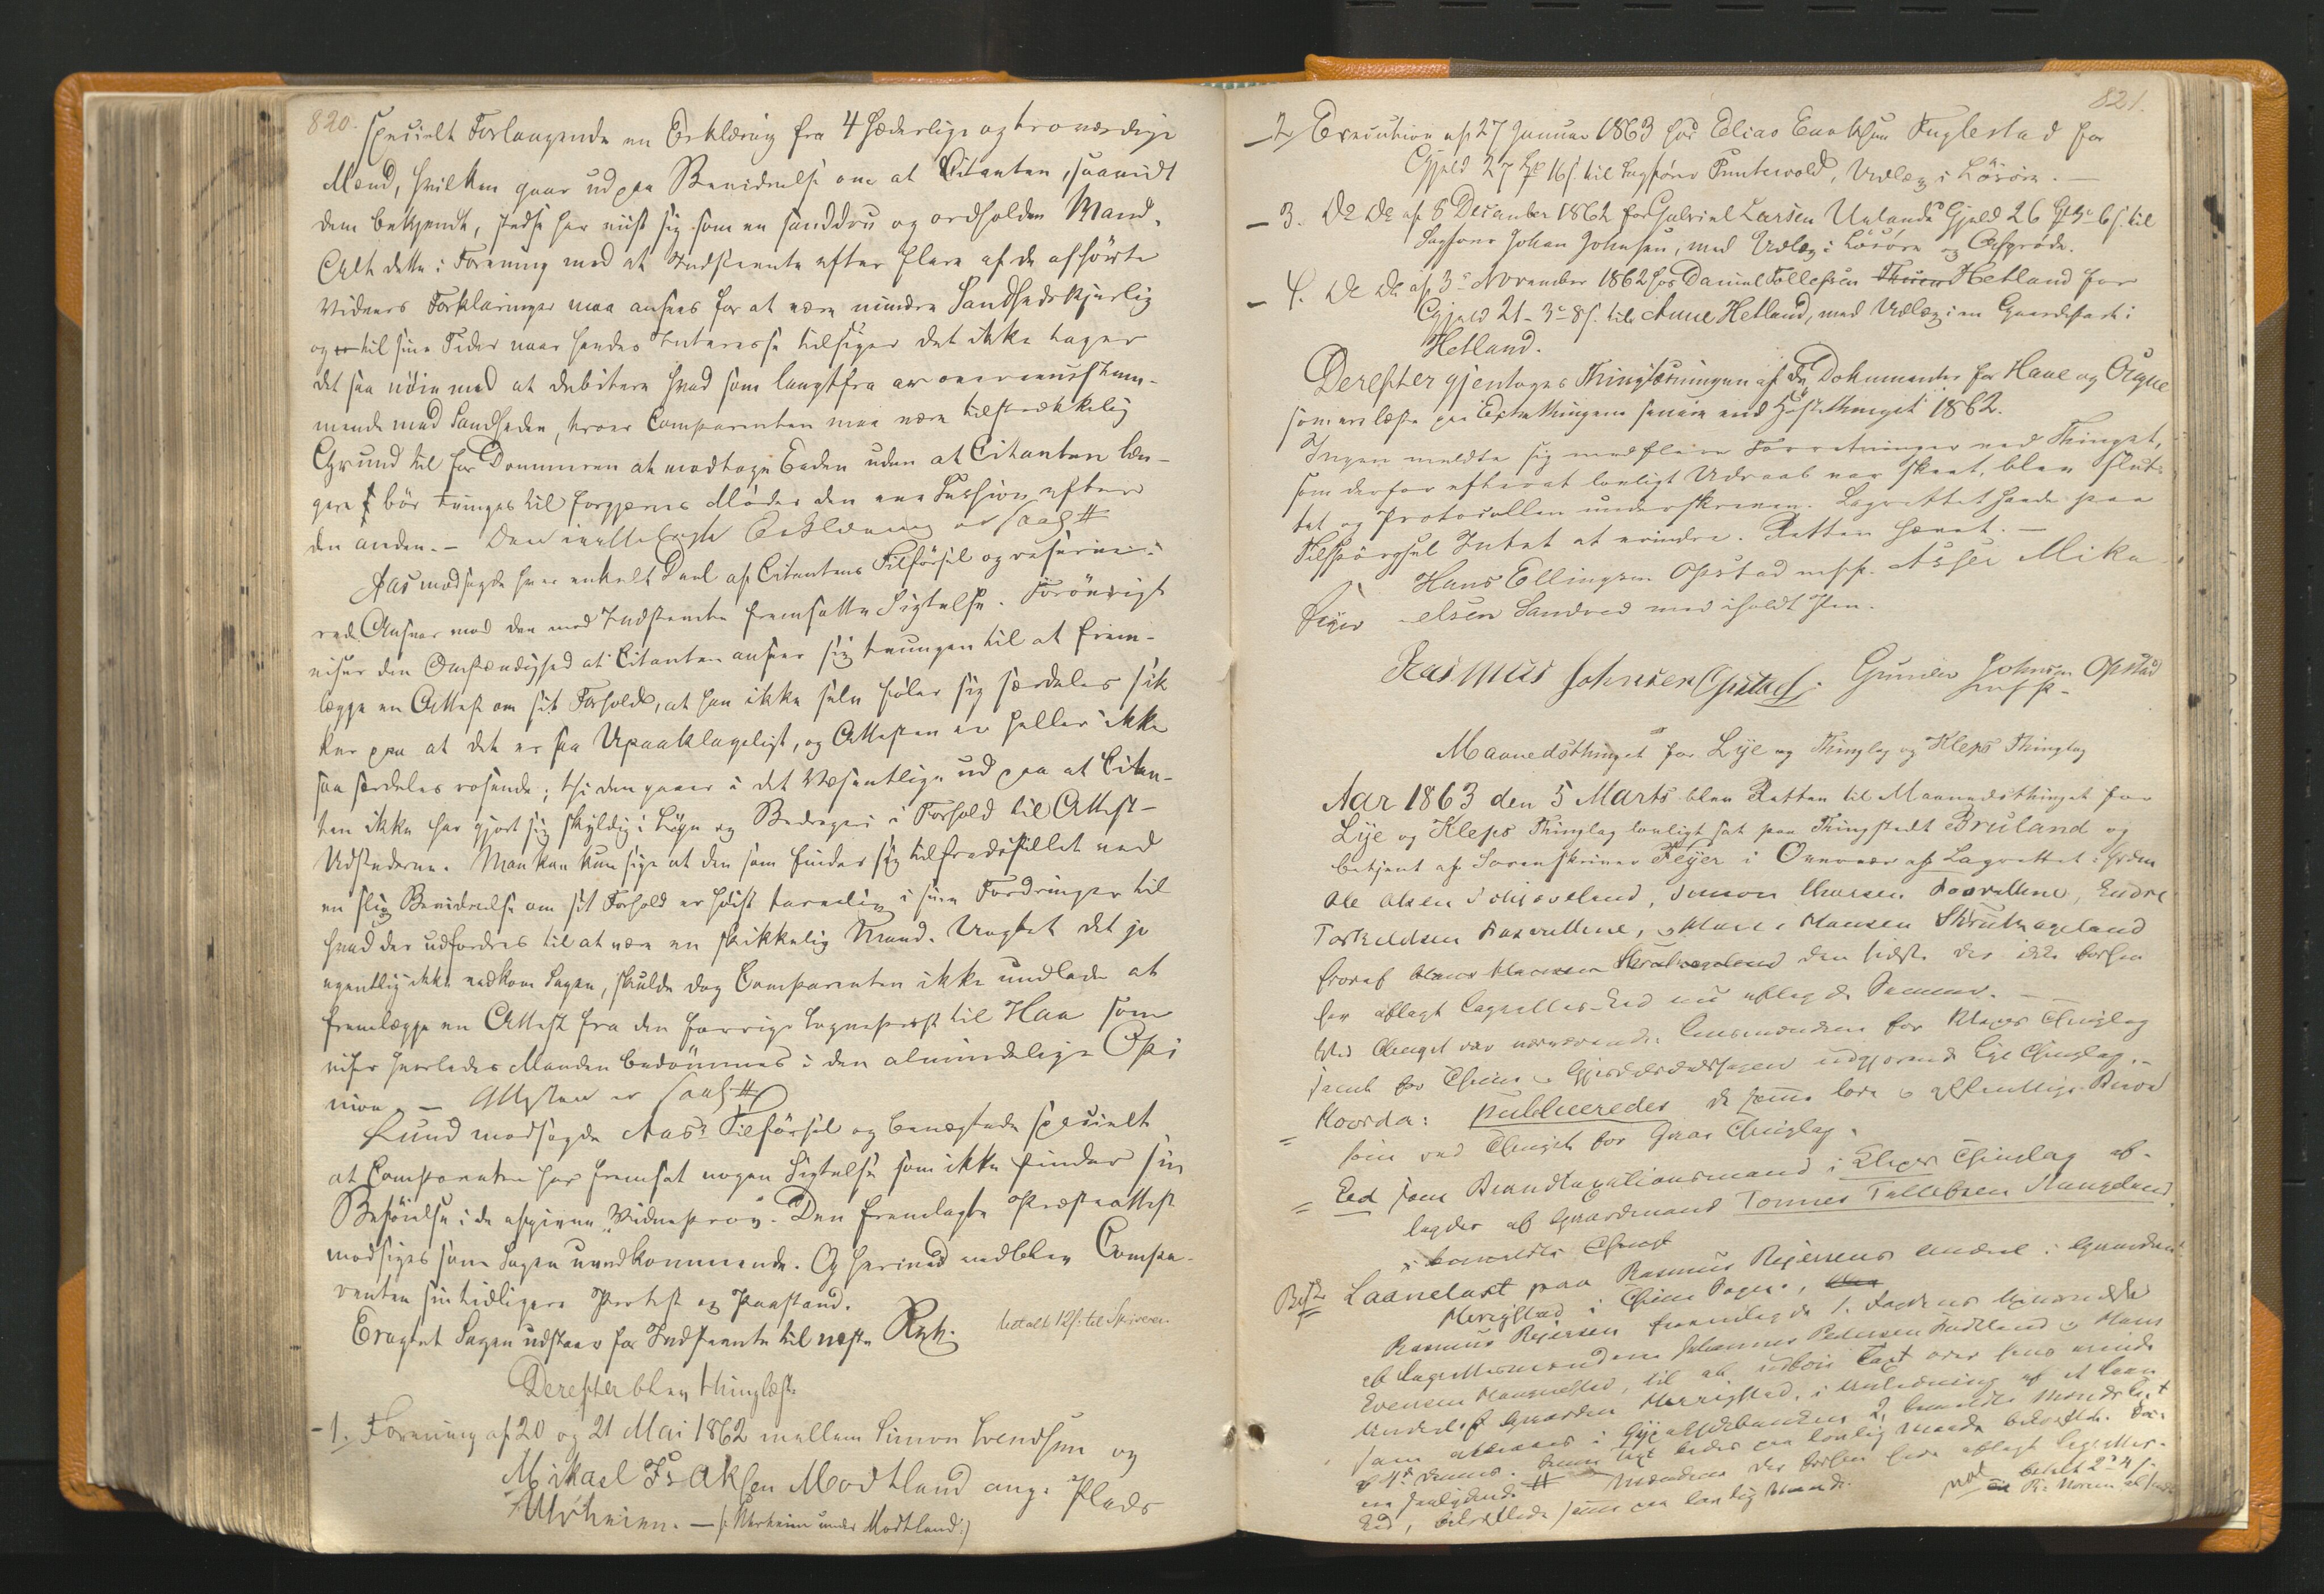 820.
specielt Forlangende en Erklæring fra 4 hæderlige og troværdige
Mænd, hvilken gaar ud paa Bevidnelse om at Citanten, saavidt
dem bekjendt, stedse har viist sig som en sanddru og ordholden Mand.
Alt dette i Forening med at Indstevnte efter flere af de afhørte
Vidners Forklaringer maa ansees for at være mindre Sandhedskjærlig
og til sine Tider naar hendes Interesse tilsiger det ikke tager
det saa nøie med at debitere hvad som langtfra er overeensstem-
mende med Sandheden, troer Comparenten maa være tilstrækkelig
Grund til for Dommeren at modtage Eeden uden at Citanten læn-
gere bør tvinges til forgjæves Møder den ene Session efter
den anden. – Den Erklæring er saal. #
Aas modsagde hver enkelt Deel af Citantens Tilførsel og reserve-
rede Ansvar mod den mod Indstevnte fremsatte Sigtelse. Forøvrigt
viser den Omstændighed at Citanten anseer sig tvungen til at frem-
lægge en Attest om sit Forhold, at han ikke selv føler sig særdeles sik
ker paa at det er saa Upaaklageligt, og Attesten er heller ikke
saa særdeles rosende; thi den gaaer i det Væsentlige ud paa at Citan-
ten ikke har gjort sig skyldig i Løgn og Bedrageri i Forhold til Attest-
Udstederne. Man kan kun sige at den som finder sig tilfredsstillet ved
en slig Bevidnelse om sit Forhold er høist tarvelig i sine Fordringer til
hvad der udfordres til at være en skikkelig Mand. Uagtet det jo
egentlig ikke vedkom Sagen, skulde dog Comparenten ikke undlade at
fremlægge en Attest fra den forrige Sognepræst til Haa som
viser hvorledes Manden bedømmes i den almindelige Opi
nion. – Attesten er saal. #
Lund modsagde Aas's Tilførsel og benægtede specielt
at Comparenten har fremsat nogen Sigtelse som ikke finder sin
Beføielse i de afgivne Vidneprov. Den fremlagte Præsteattest
modsiges som Sagen uvedkommende. Og hermed vedblev Compa-
renten sin tidligere Protest og Paastand.
Eragtet Sagen udstaar for Indstevnte til næste Ret. betalt 12 s. til Skriveren
Derefter blev thinglæst
– 1. Forening af 20 og 21 Mai 1862 mellem Simon Svendsen og
Mikael Isaksen Modtland ang. Plads
Urheim. – (: Urheim under Modtland :)
821.
– 2. Execution af 27 Januar 1863 hos Elias Enoksen Fuglestad for
Gjæld 27 Sp 16 s. til Sagfører Puntervold, Udlæg i Løsøre. –
– 3. Do Do af 8 December 1862 hos Gabriel Larsen Uelands Gjæld 26 6 s. til
Sagfører Johan Johnsen, med Udlæg i Løsøre og Afgrøde.
– 4. Do Do af 3 November 1862 hos Daniel Tollefsen Hetland for
Gjæld 21 - 3 - 8 s. til Anne Hetland, med Udlæg i en Gaardpart i
Hetland.
Derefter gjentoges Thinglæsningen af de Dokumenter for Haae og Ougne
som ere læste paa Extrathingene senere end Høstethinget 1862.
Ingen meldte sig med flere Forretninger ved Thinget,
som derfor efterat lovligt Udraab var skeet, blev slut-
tet og Protocollen underskreven. Lagrettet havde paa
Tilspørgsel Intet at erindre. Retten hævet. –
Feyer Hans Ellingsen Opstad mfP. Asser Mika
elsen Sandved med iholdt Pen.
Rasmus Johnsen Opstad. Gunder Johnsen Opstad
mfP.
Maanedsthinget for Lye Thinglag og Kleps Thinglag
Aar 1863 den 5 Marts blev Retten til Maanedsthinget for
Lye og Kleps Thinglag lovligt sat paa Thingstedt Bruland og
betjent af Sorenskriver Feyer i Overvær af Lagrettet:
Ole Olsen, Simon, Endre
Torkeldsen, Hans Hansen Skrudtvageland
hvoraf den sidste der ikke forhen
har aflagt Lagrettes-Eed nu aflagde Samme. –
Ved Thinget var nærværende Lensmændene for Kleps Thinglag
samt for Thime og Gjesdal udgjørende Lye Thinglag. –
= publiceredes de samme Love og offentlige Breve
som ved Thinget for Haae Thinglag.
= Eed som Brandtaxationsmand i Kleps Thinglag af-
lagdes af Gaardmand Tønnes Tollefsen Stangeland
i Thinget
Laanetaxt paa Rasmus Rejersens Andeel i Gaarden
i Thime Sogn,
Rasmus Rejersen fremlagde 1.
af Lagrettesmændene Johannes Pedersen og Hans
Evensen, til at udføre Taxt over hans eiende
Underbrug Gaarden, i Anledning af et Laan
som attraaes i Hypothekbanken 2,
betalt 2 4 s.